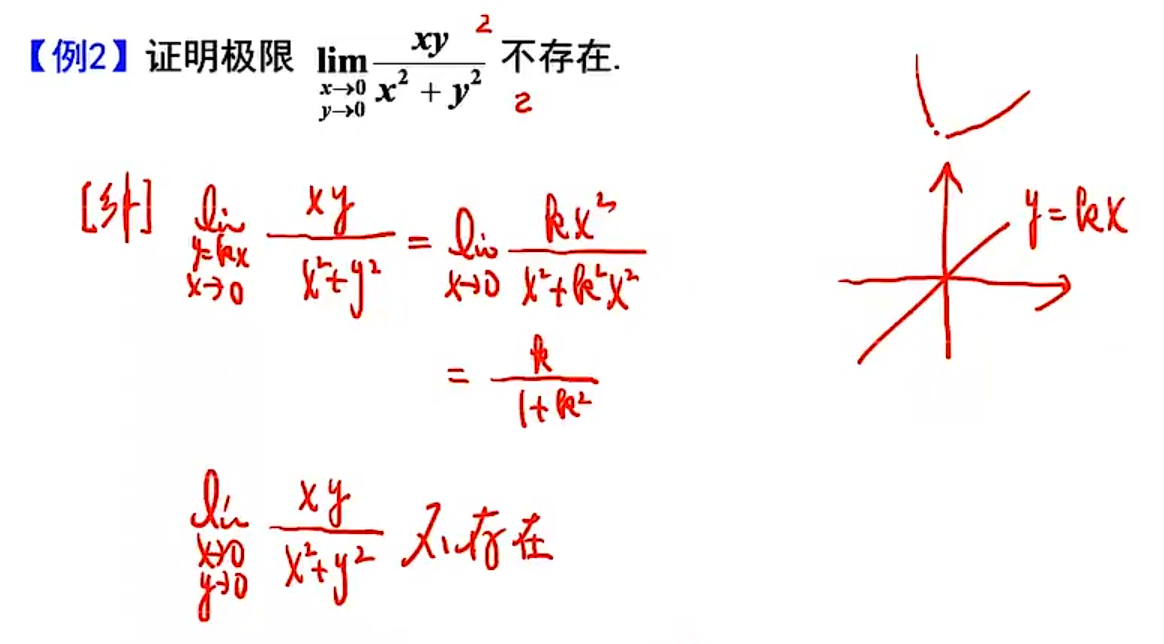 【例2】证明极限 lim x→0 y→0 xy/(x² + y²) 不存在.
2
2
[纠] lim y=kx x→0 xy/(x²+y²) = lim x→0 kx²/(x²+k²x²)
= k/(1+k²)
lim x→0 y→0 xy/(x²+y²) 不存在
y=kx